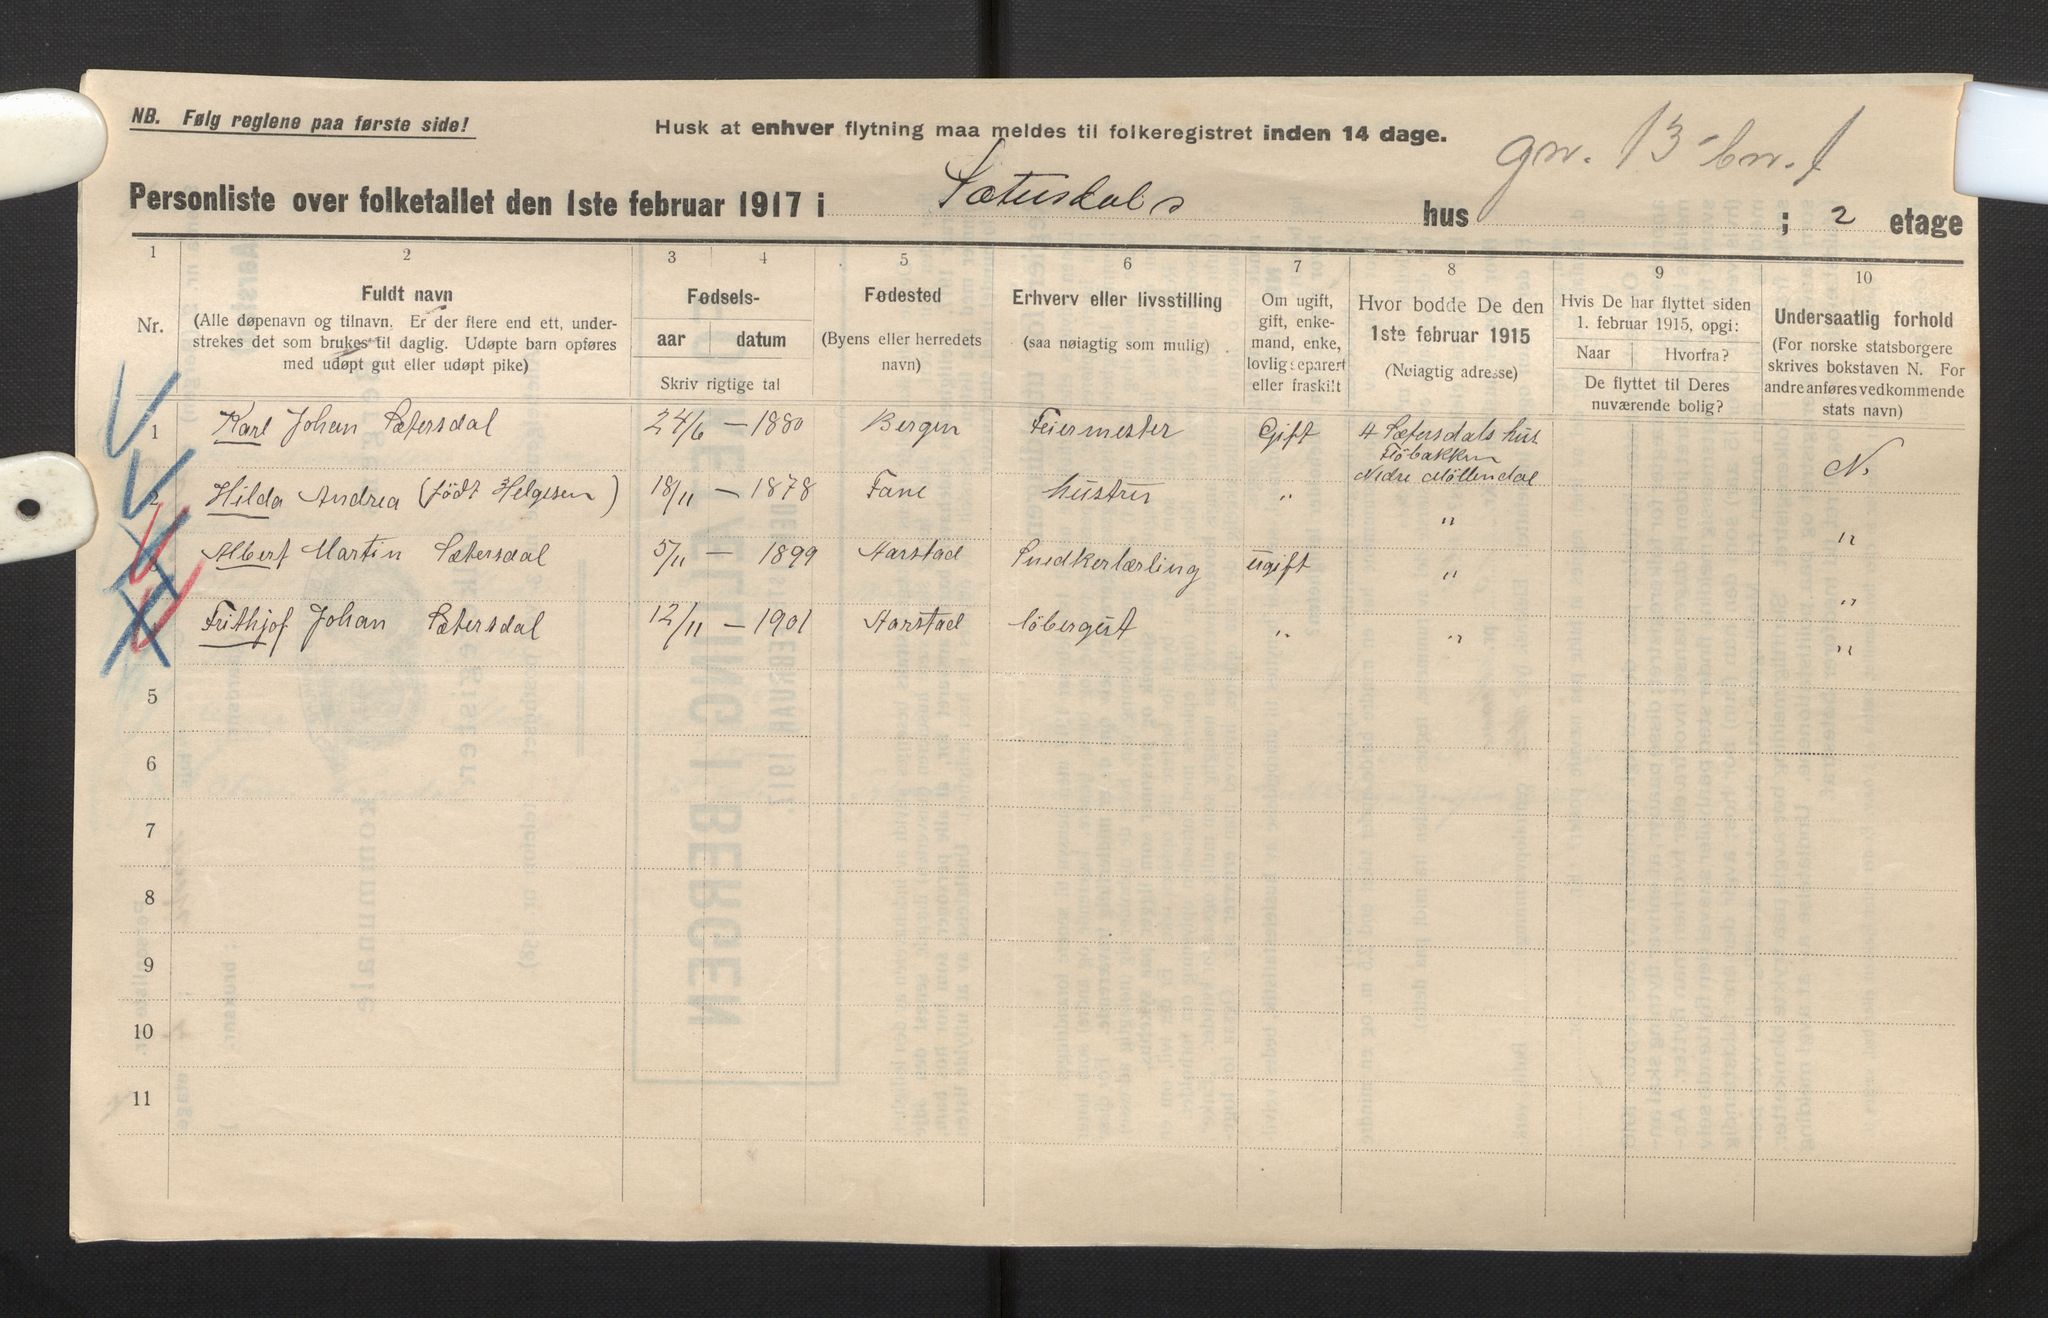 NB. Følg reglene paa første side!
Husk at enhver flytning maa meldes til folkeregistret inden 14 dage.
gn. 13 bn. 1
Personliste over folketallet den 1ste februar 1917 i Sætersdals hus ; 2 etage
1 2 3 4 5 6 7 8 9 10
Nr.
Fuldt navn
(Alle døpenavn og tilnavn. Er der flere end ett, under-
strekes det som brukes til daglig. Udøpte barn opføres
med udøpt gut eller udøpt pike)
Fødsels-
aar datum
Skriv rigtige tal
Fødested
(Byens eller herredets
navn)
Erhverv eller livsstilling
(saa nøiagtig som mulig)
Om ugift,
gift, enke-
mand, enke,
lovlig separert
eller fraskilt
Hvor bodde De den
1ste februar 1915
(Nøiagtig adresse)
Hvis De har flyttet siden
1. februar 1915, opgi:
Naar Hvorfra?
De flyttet til Deres
nuværende bolig?
Undersaatlig forhold
(For norske statsborgere
skrives bokstaven N. For
andre anføres vedkommende
stats navn)
1 Karl Johan Sætersdal 24/6 — 1880 Bergen Feiermester Gift 4 Sætersdals hus N.
Flöbakken
Nedre Möllendal
2 Hilda Andrea (födt Helgesen) 18/11 — 1878 Fane hustru " " "
3 Albert Martin Sætersdal 5/11 — 1899 Aarstad Snedkerlærling ugift " "
4 Frithjof Johan Sætersdal 12/11 — 1901 Aarstad löbergut " " "
5
6
7
8
9
10
11